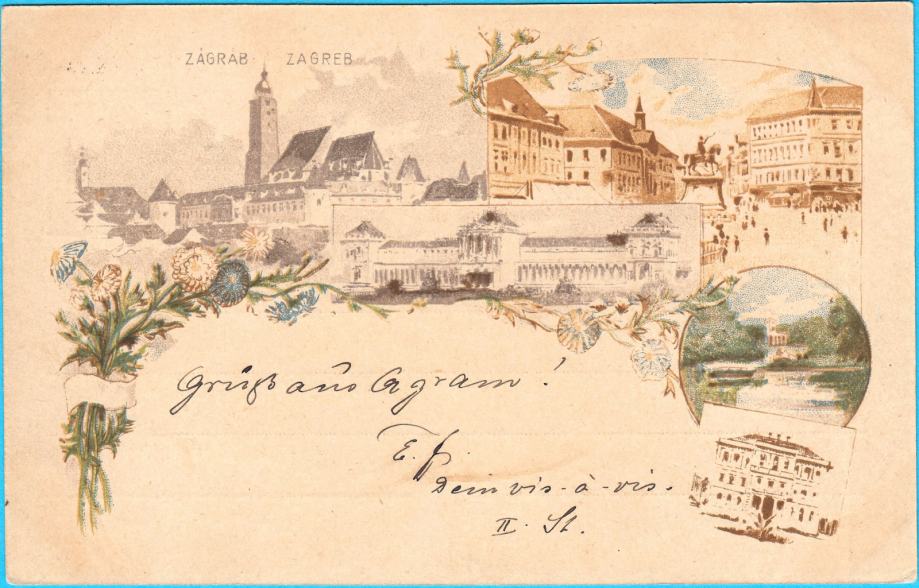 ZÁGRÁB ZAGREB
Gruß aus Agram!
E. f.
Dein vis-à-vis.
II. St.